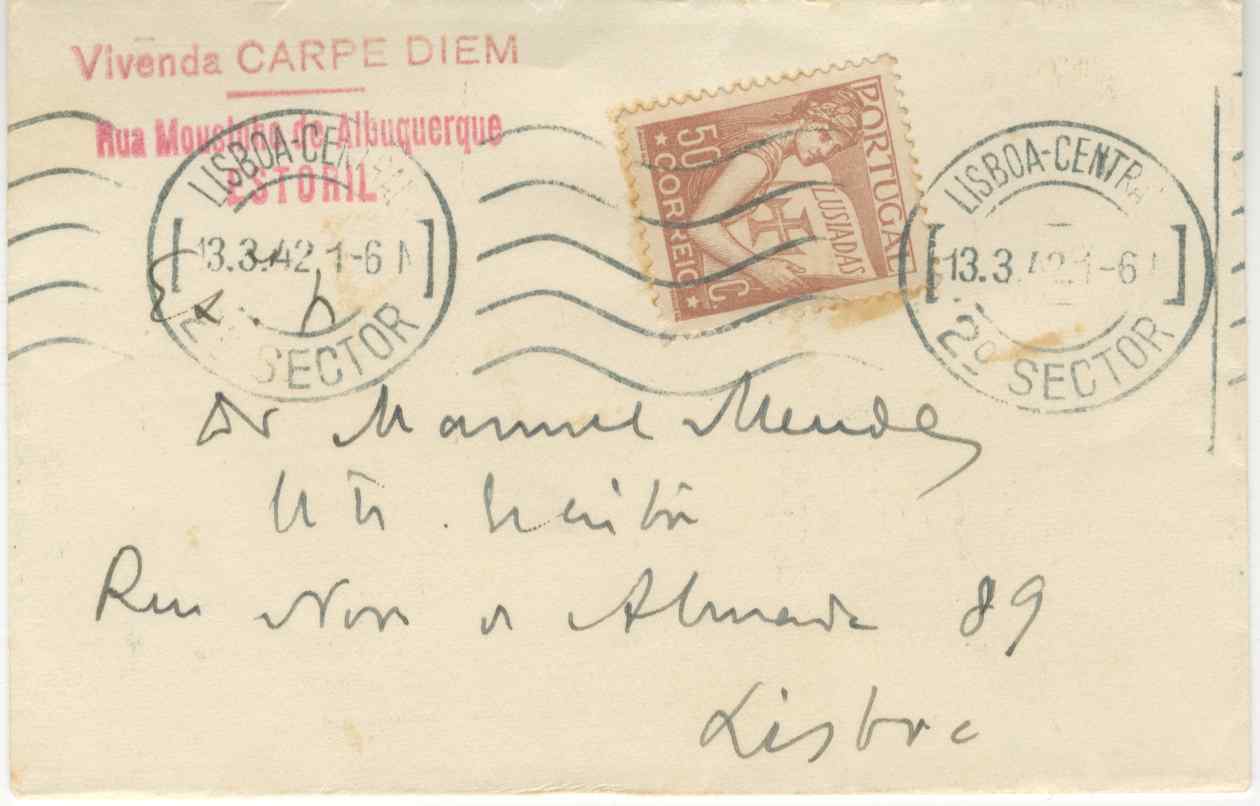 Vivenda CARPE DIEM
Rua Mousinho de Albuquerque
ESTORIL
LISBOA-CENTRAL
13.3.42.1-6
2º SECTOR
PORTUGAL
LUSIADAS
50 C.
CORREIO
LISBOA-CENTRAL
13.3.42.1-6
2º SECTOR
Dr Manuel Mendes
Rua Nova d Almada 89
Lisboa